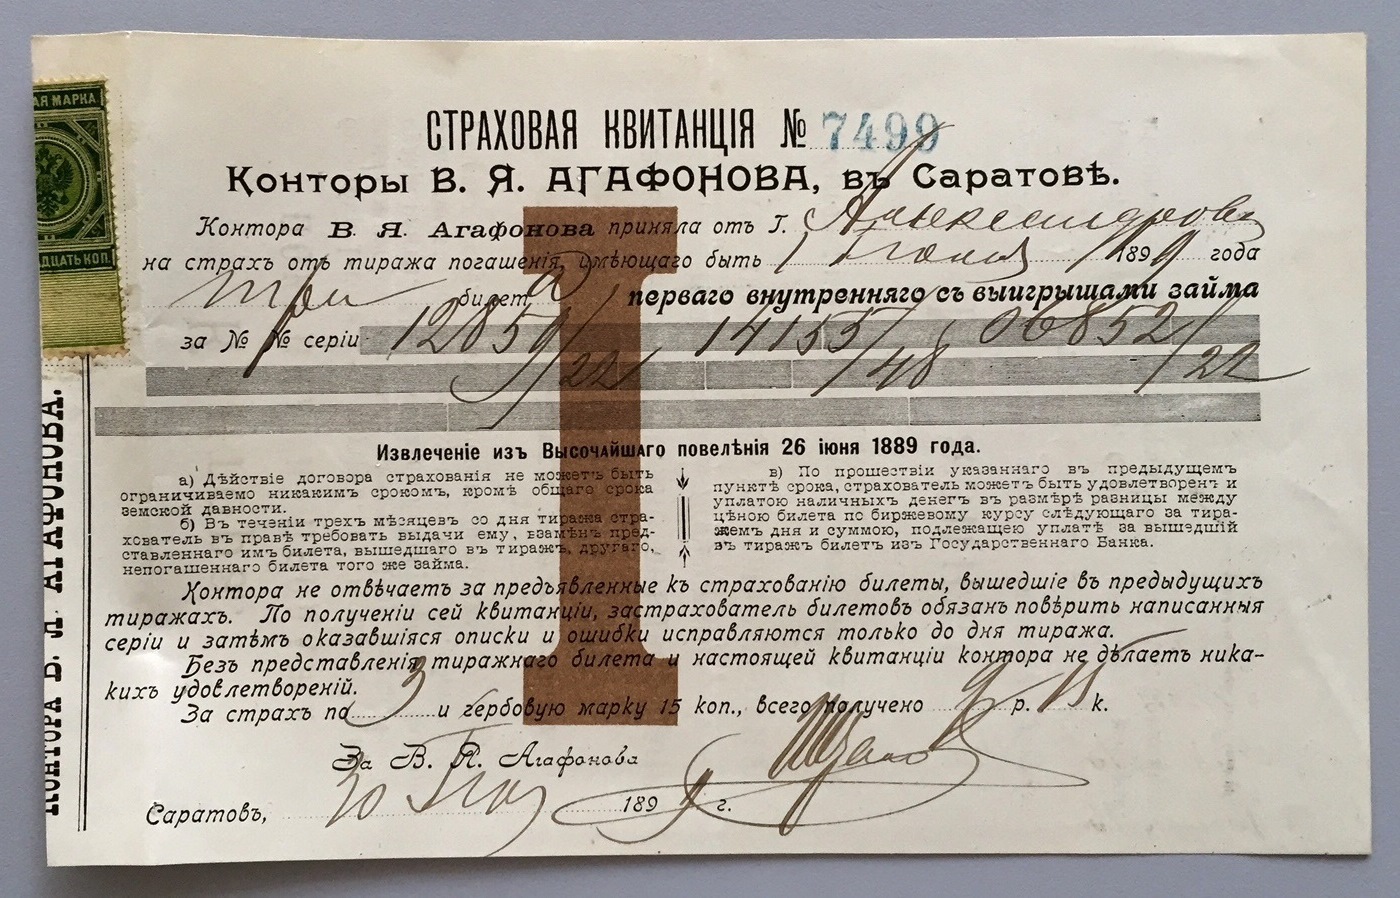 АЯ МАРКА
ДЦАТЬ КОП.
КОНТОРА В. Я АГАФОНОВА.
СТРАХОВАЯ КВИТАНЦІЯ № 7499
Конторы В. Я. АГАФОНОВА, въ Саратовѣ.
Контора В. Я. Агафонова приняла отъ Г. Александрова
на страхъ отъ тиража погашенія, имѣющаго быть 1 Іюля 1899 года
три билета перваго внутренняго съ выигрышами займа
за № № серіи 12859/22, 14155/48, 06852/22
Извлеченіе изъ Высочайшаго повелѣнія 26 іюня 1889 года.
а) Дѣйствіе договора страхованія не можетъ быть
ограничиваемо никакимъ срокомъ, кромѣ общаго срока
земской давности.
б) Въ теченіи трехъ мѣсяцевъ со дня тиража стра-
хователь въ правѣ требовать выдачи ему, взамѣнъ пред-
ставленнаго имъ билета, вышедшаго въ тиражъ, другаго,
непогашеннаго билета того же займа.
в) По прошествіи указаннаго въ предыдущемъ
пунктѣ срока, страхователь можетъ быть удовлетворенъ и
уплатою наличныхъ денегъ въ размѣрѣ разницы между
цѣною билета по биржевому курсу слѣдующаго за тира-
жемъ дня и суммою, подлежащею уплатѣ за вышедшій
въ тиражъ билетъ изъ Государственнаго Банка.
Контора не отвѣчаетъ за предъявленные къ страхованію билеты, вышедшіе въ предыдущихъ
тиражахъ. По полученіи сей квитанціи, застрахователь билетовъ обязанъ повѣрить написанныя
серіи и затѣмъ оказавшіяся описки и ошибки исправляются только до дня тиража.
Безъ представленія тиражнаго билета и настоящей квитанціи контора не дѣлаетъ ника-
кихъ удовлетвореній.
За страхъ по 3 и гербовую марку 15 коп., всего получено 9 р. 15 к.
За В. Я. Агафонова
Саратовъ, 30 189 г.
I